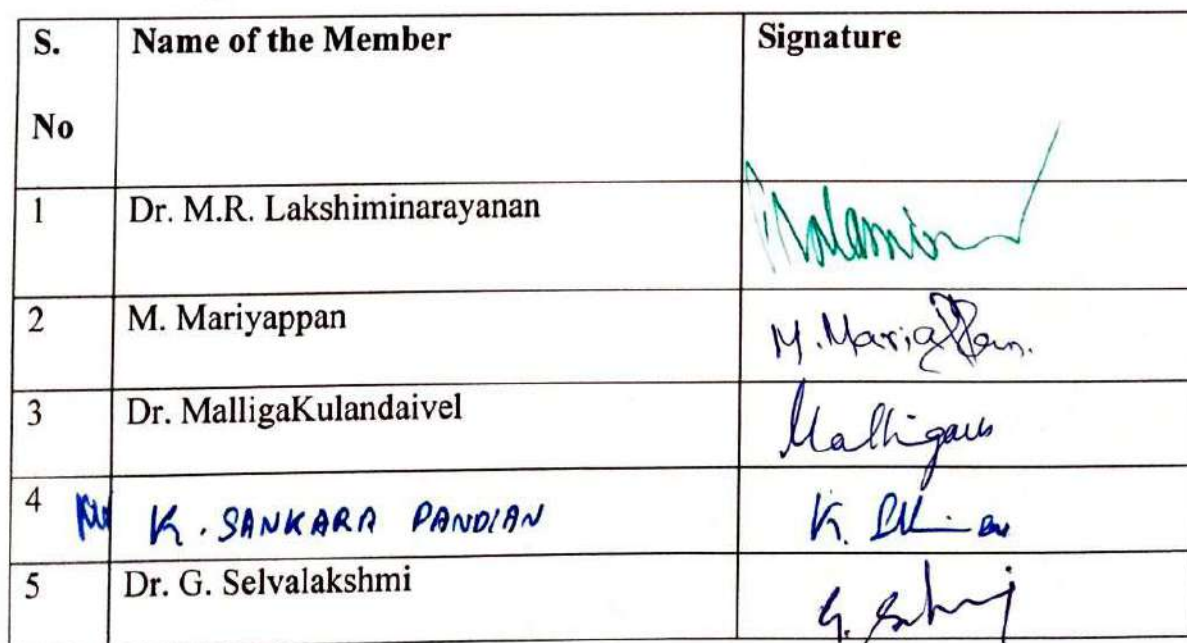 S. Name of the Member Signature
No
1 Dr. M.R. Lakshiminarayanan
2 M. Mariyappan M. Mariappan.
3 Dr. MalligaKulandaivel
4 K. SANKARA PANDIAN K.
5 Dr. G. Selvalakshmi G.